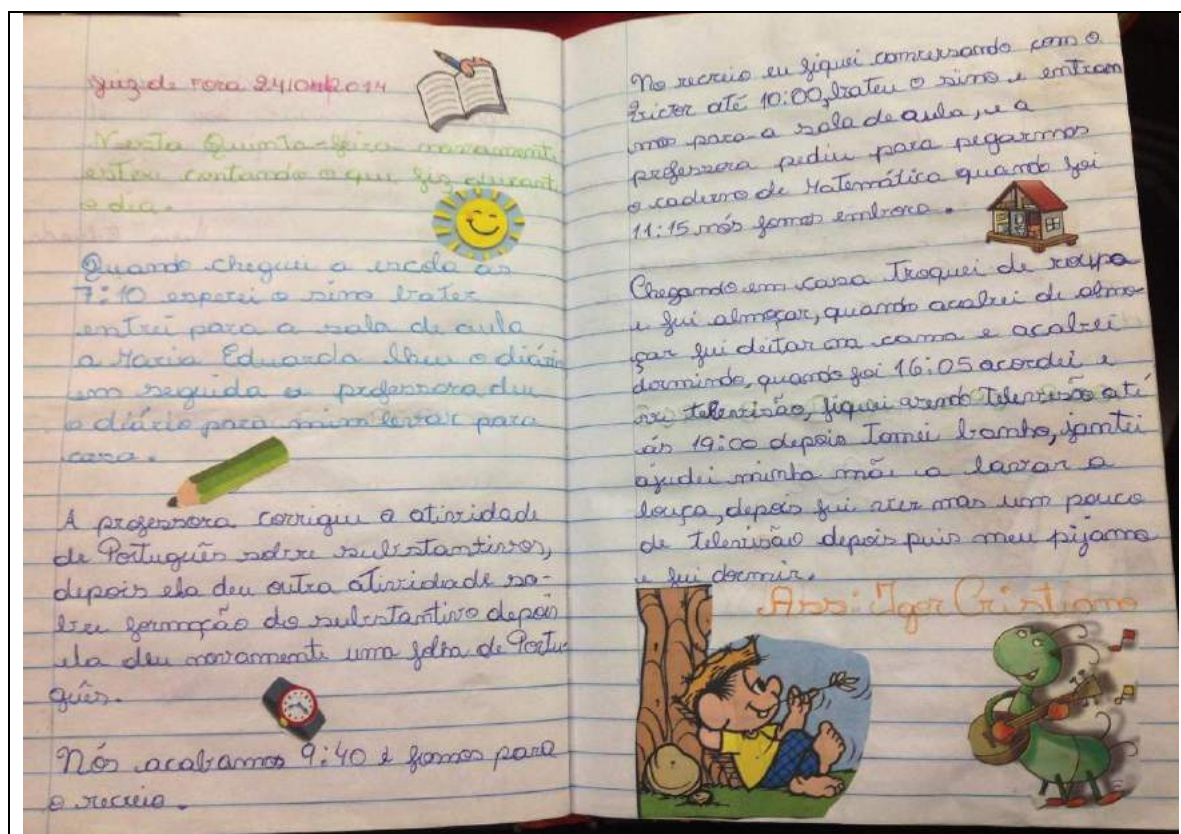 Juiz de Fora 24/04/2014
Nesta Quinta-feira novamente
estou contando o que fiz durant
o dia.
Quando cheguei a escola às
7:10 esperei o sino bater
entrei para a sala de aula
a Maria Eduarda lheu o diário
em seguida a professora deu
o diário para mim levar para
casa.
A professora corrigiu a atividade
de Português sobre substantivos,
depois ela deu outra atividade so-
bre formação do substantivo depois
ela deu novamente uma folha de Portu-
guês.
Nós acabamos 9:40 e fomos para
o recreio.
No recreio eu fiquei conversando com o
Victor até 10:00, bateu o sino e entram
mos para a sala de aula, e a
professora pediu para pegarmos
o caderno de Matemática quando foi
11:15 nós fomos embora.
Chegando em casa Troquei de roupa
e fui almoçar, quando acabei de almo-
çar fui deitar na cama e acabei
dormindo, quando foi 16:05 acordei e
vi televisão, fiquei vendo Televisão até
às 19:00 depois Tomei banho, jantei
ajudei minha mãe a lavar a
louça, depois fui ver mas um pouco
de televisão depois puis meu pijama
e fui dormir.
Ass: Igor Cristiano